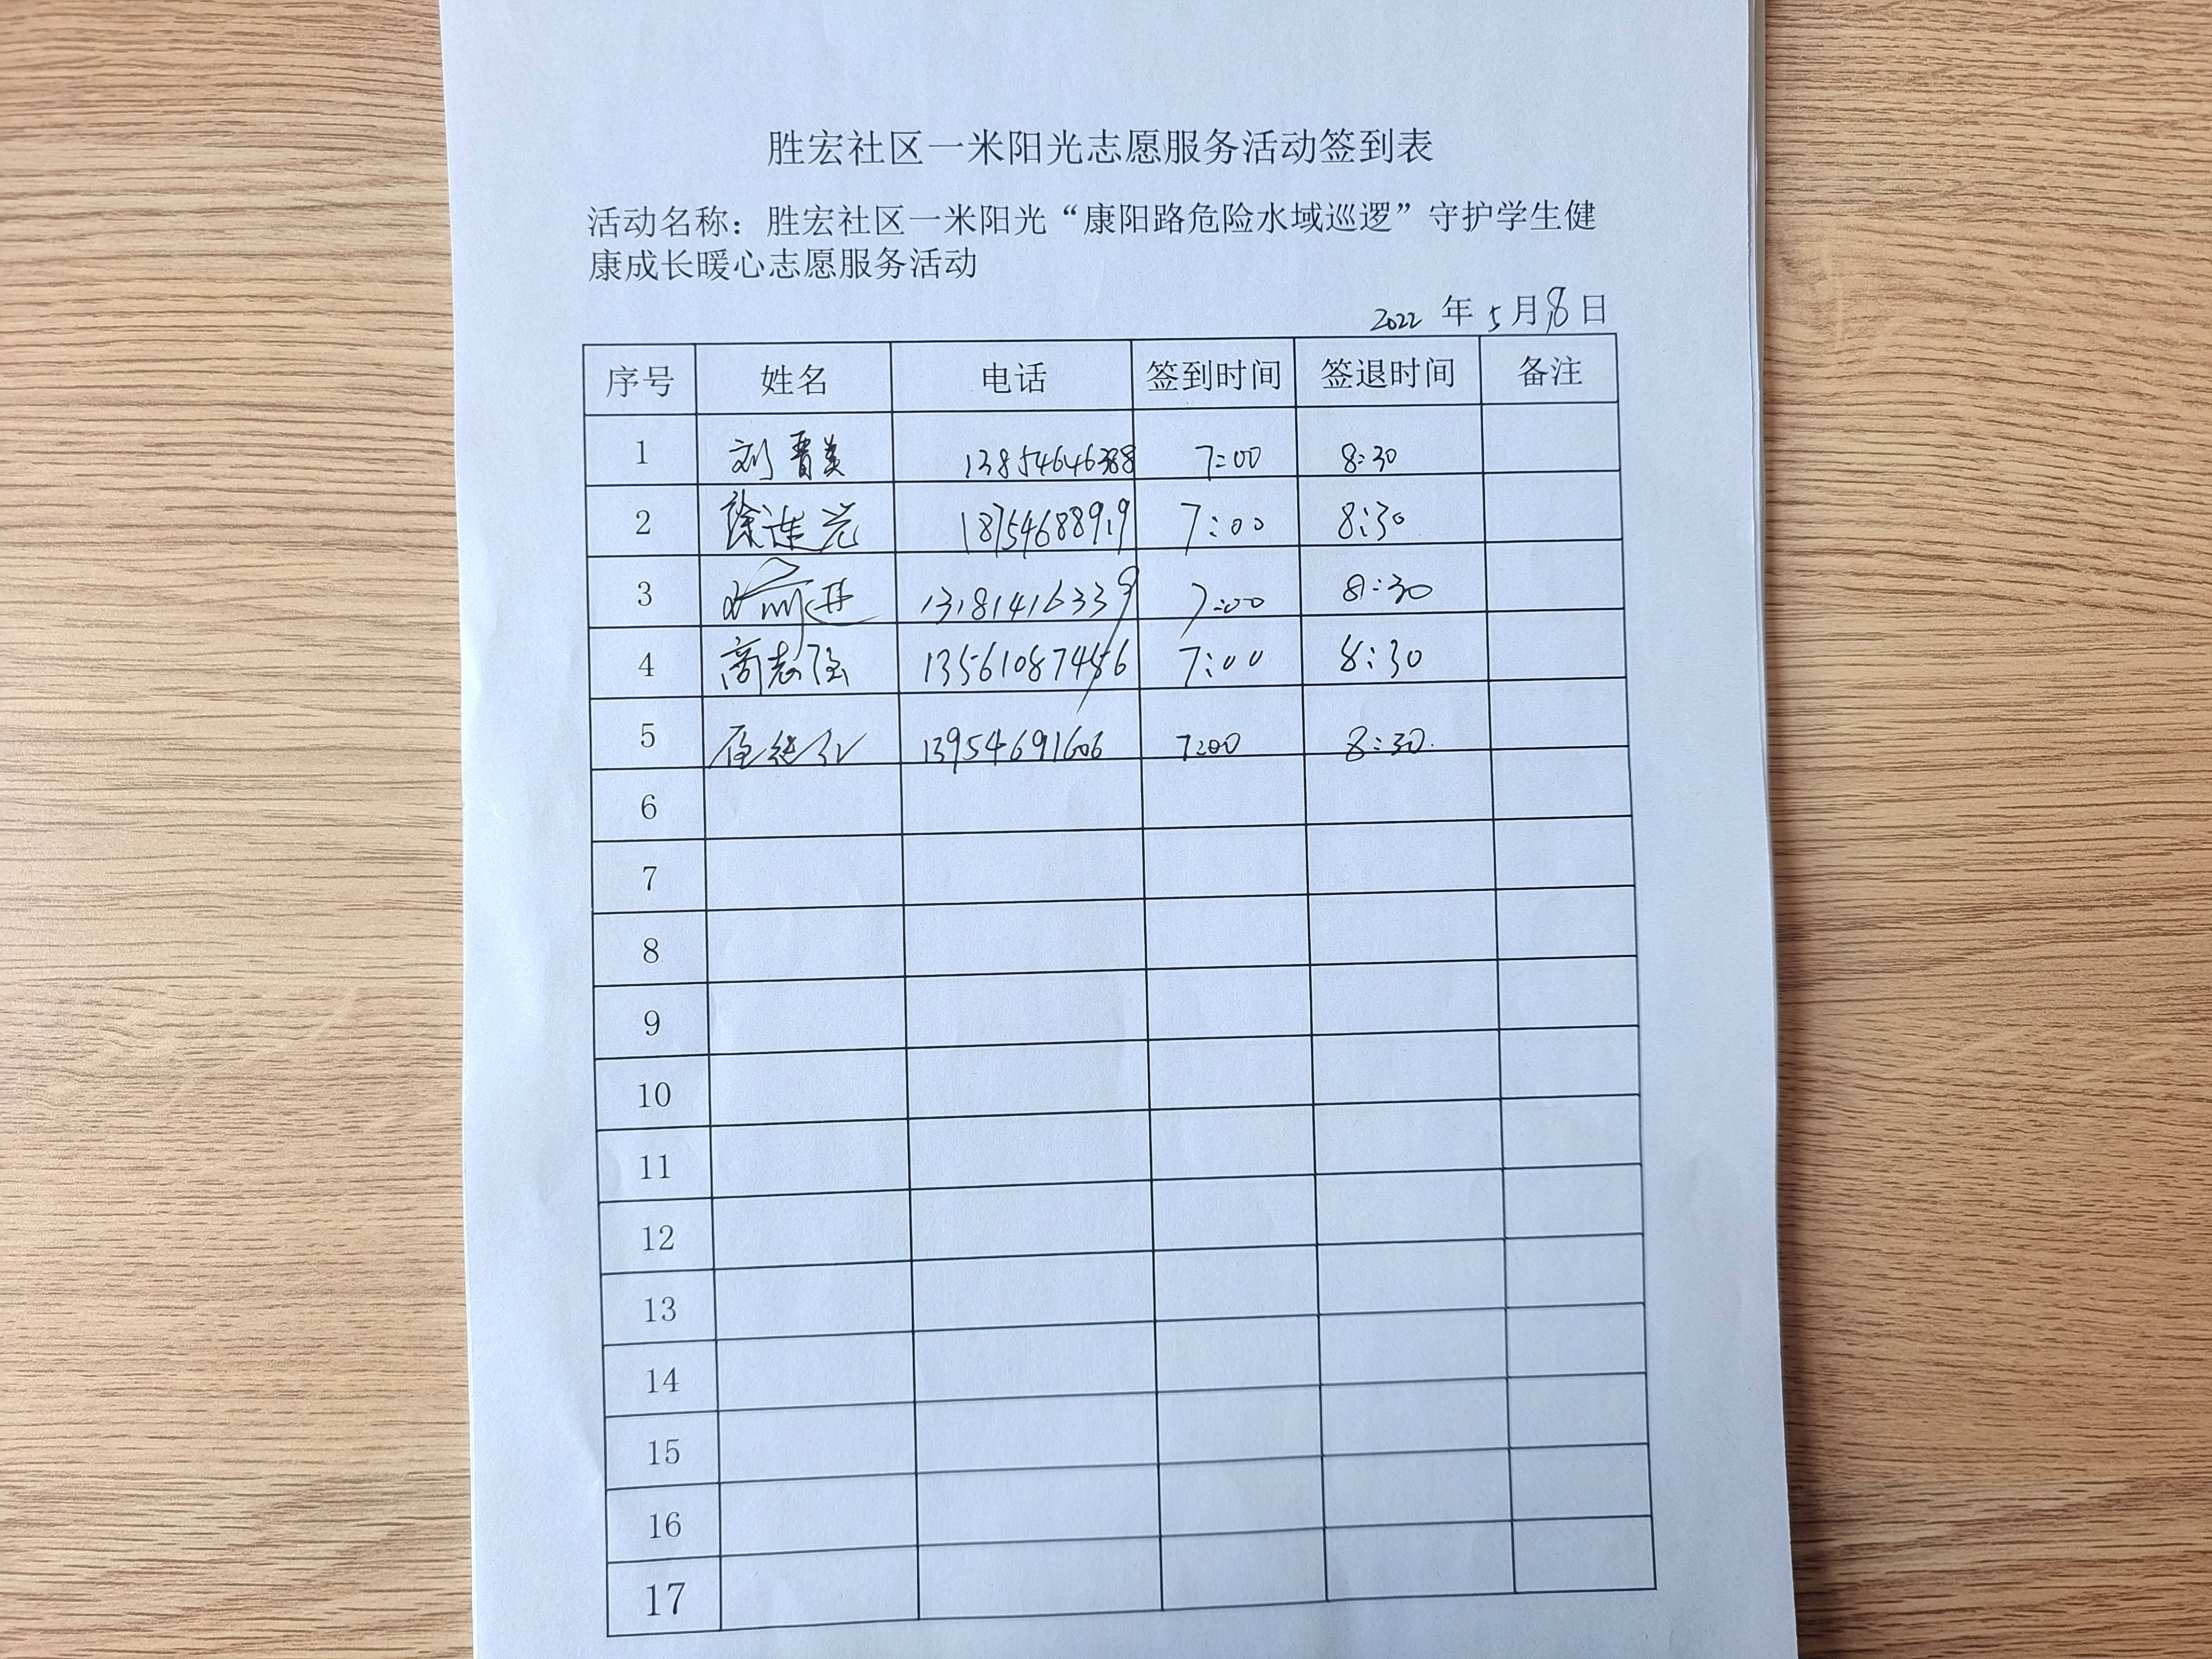 胜宏社区一米阳光志愿服务活动签到表
活动名称：胜宏社区一米阳光“康阳路危险水域巡逻”守护学生健
康成长暖心志愿服务活动
2022 年 5 月 8 日
序号 姓名 电话 签到时间 签退时间 备注
1 刘晋美 13854646388 7:00 8:30
2 徐连光 18754688919 7:00 8:30
3 13181416339 7:00 8:30
4 高志强 13561087456 7:00 8:30
5 13954691606 7:00 8:30
6
7
8
9
10
11
12
13
14
15
16
17